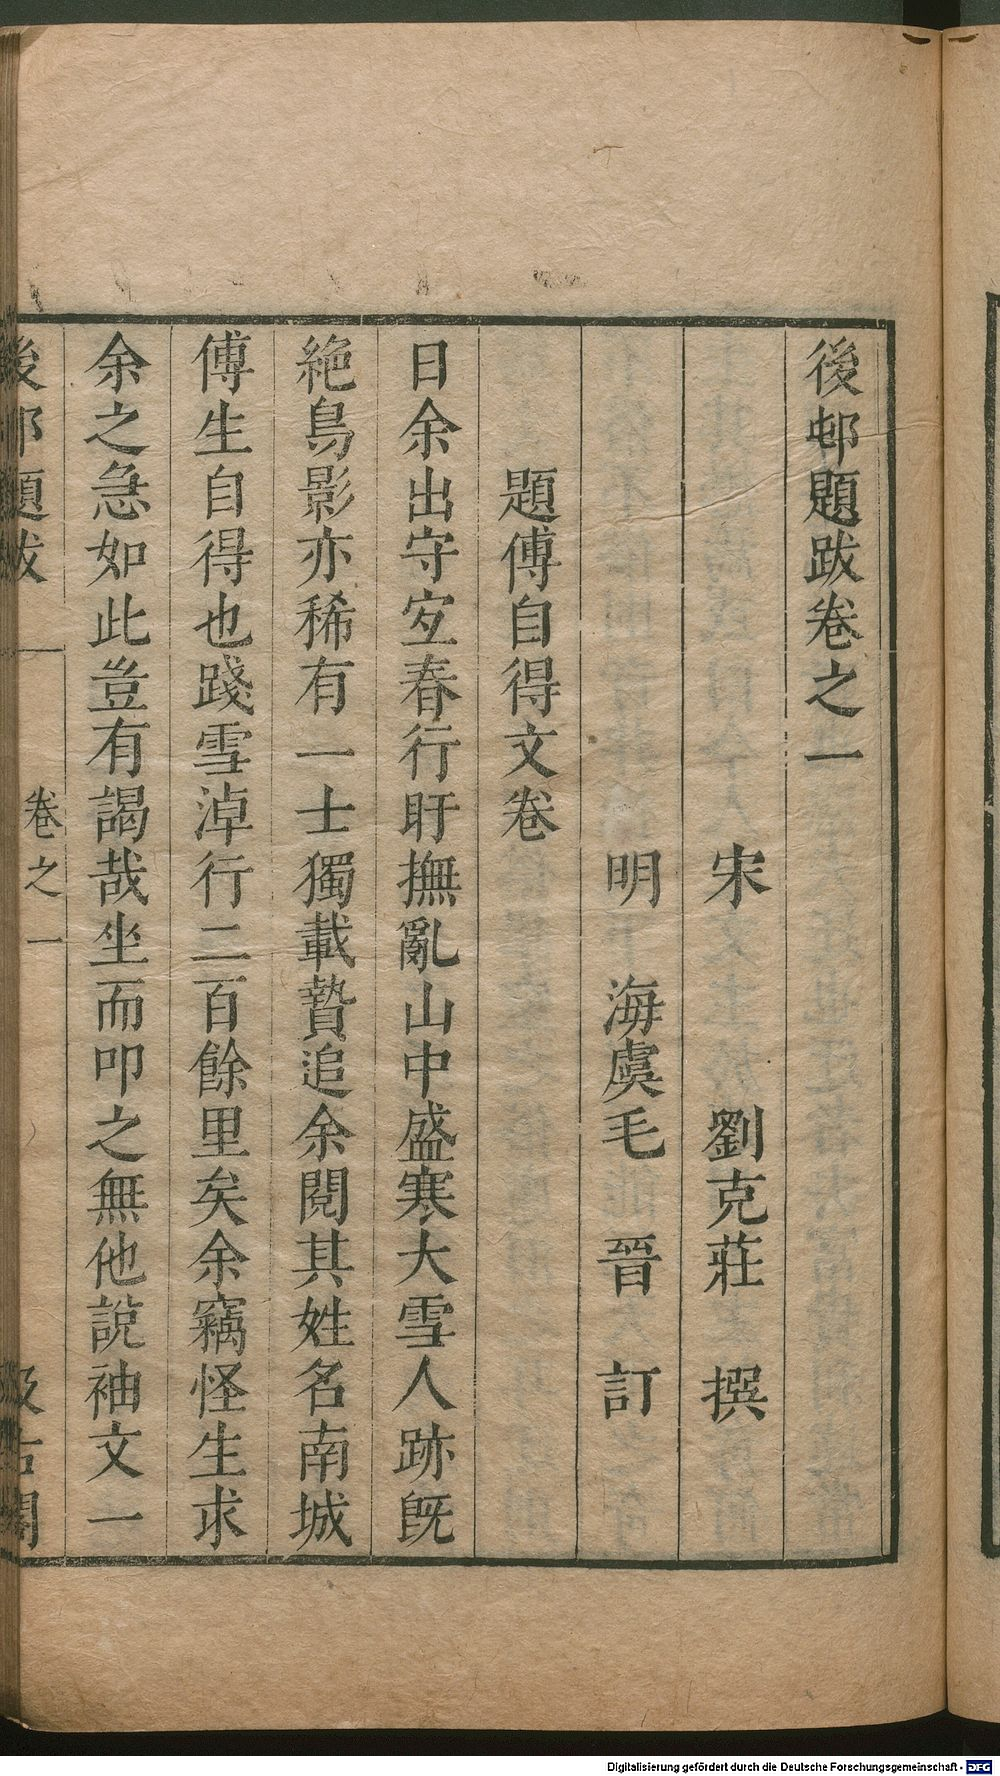 後邨題跋卷之一
宋 劉克莊 撰
明 海虞毛 晉 訂
題傅自得文卷
日余出守宜春行盱撫亂山中盛寒大雪人跡旣
絶鳥影亦稀有一士獨載贄追余閱其姓名南城
傅生自得也踐雪淖行二百餘里矣余竊怪生求
余之急如此豈有謁哉坐而叩之無他說袖文一
後邨題跋 卷之一 汲古閣
Digitalisierung gefördert durch die Deutsche Forschungsgemeinschaft - DFG